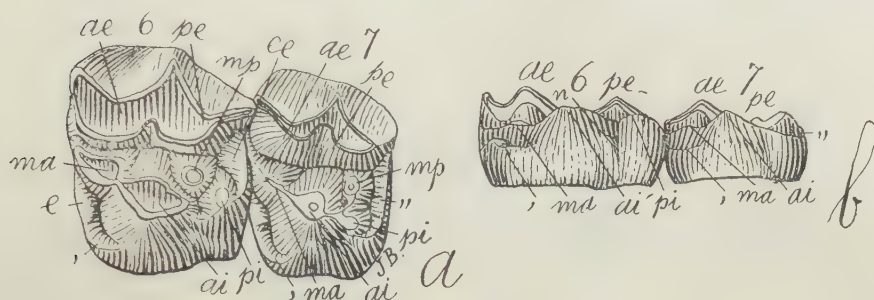 ae 6 pe
mp ce ae 7 pe
ma
e
mp
"
pi
,
ai pi , ma ai
J.B.
a
ae n 6 pe ae 7 pe
"
, ma ai pi , ma ai
b